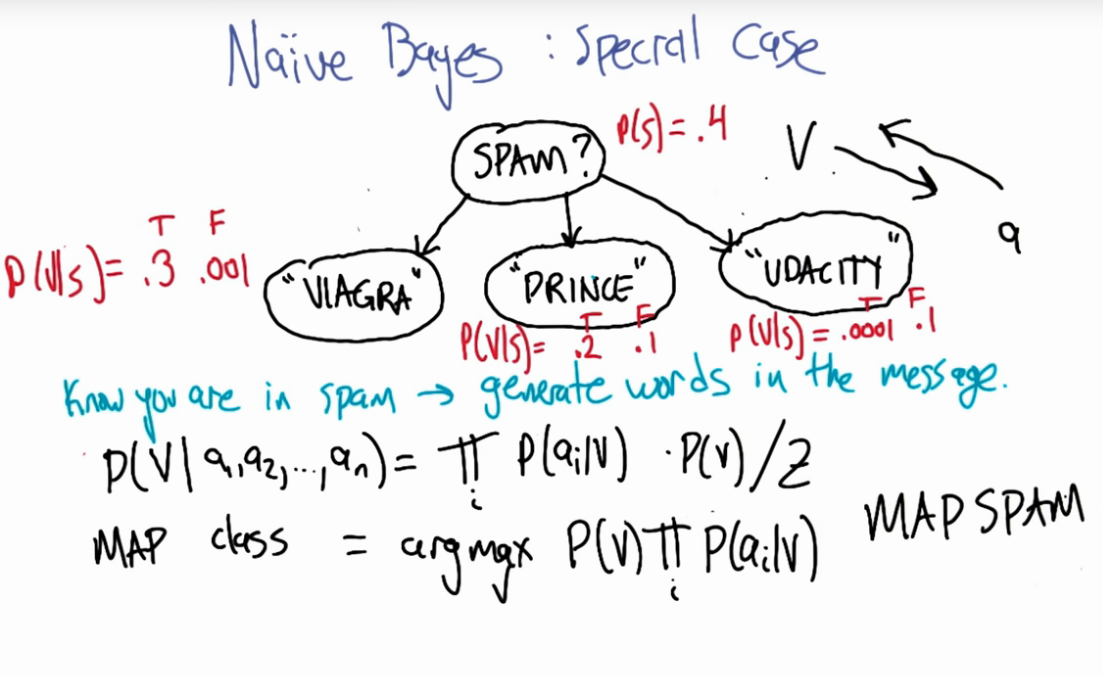 Naïve Bayes : Special Case
SPAM?
P(S) = .4
V
a
T F
P(V|S) = .3 .001
"VIAGRA"
"PRINCE"
"UDACITY"
T F
P(V|S) = .2 .1
T F
P(V|S) = .0001 .1
Know you are in spam → generate words in the message.
P(V| a₁,a₂,...,aₙ) = ∏ᵢ P(aᵢ|V) · P(V)/Z
MAP class = argmax P(V) ∏ᵢ P(aᵢ|V)
MAP SPAM